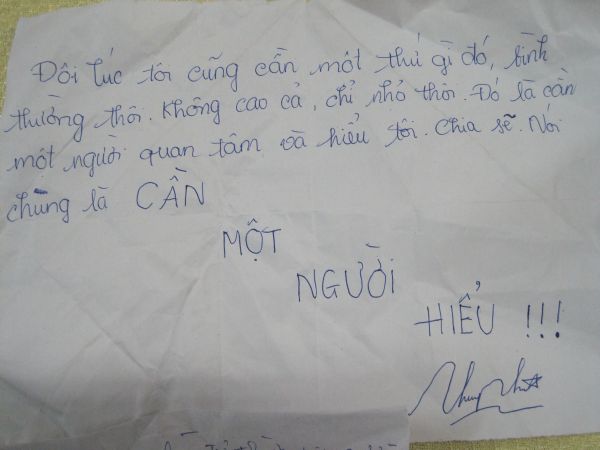 Đôi lúc tôi cũng cần một thứ gì đó, bình
thường thôi. Không cao cả, chỉ nhỏ thôi. Đó là cần
một người quan tâm và hiểu tôi. Chia sẽ. Nói
chung là CẦN
MỘT
NGƯỜI
HIỂU !!!